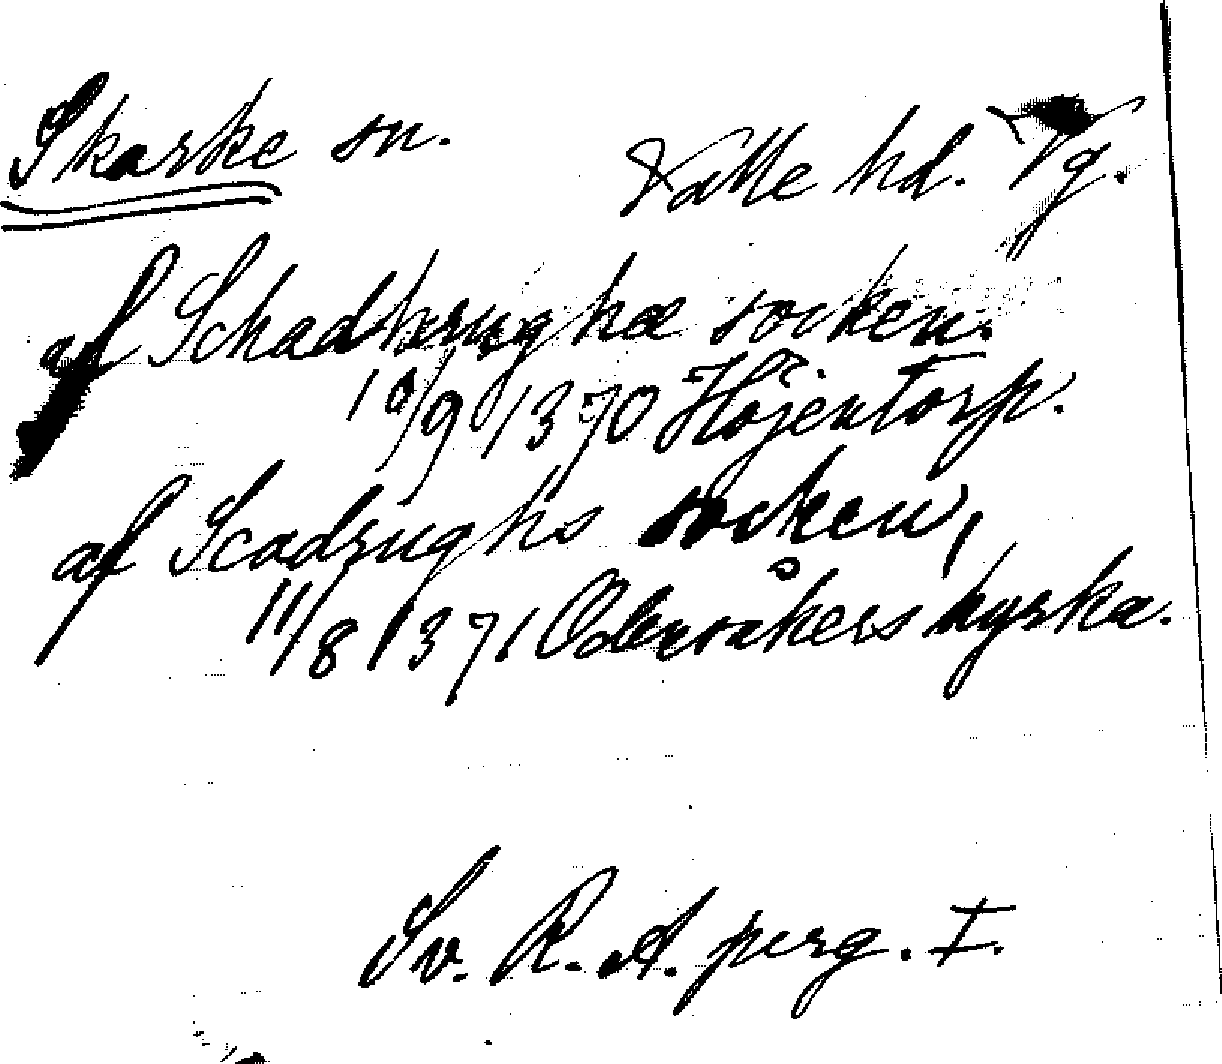 Skarke sn. Valle hd. Vg.
af Schadhrughæ socken.
10/9 1370 Höjentorp.
af Scadrughs socken,
11/8 1371 Odensåkers kyrka.
Sv. R. A. perg. I.